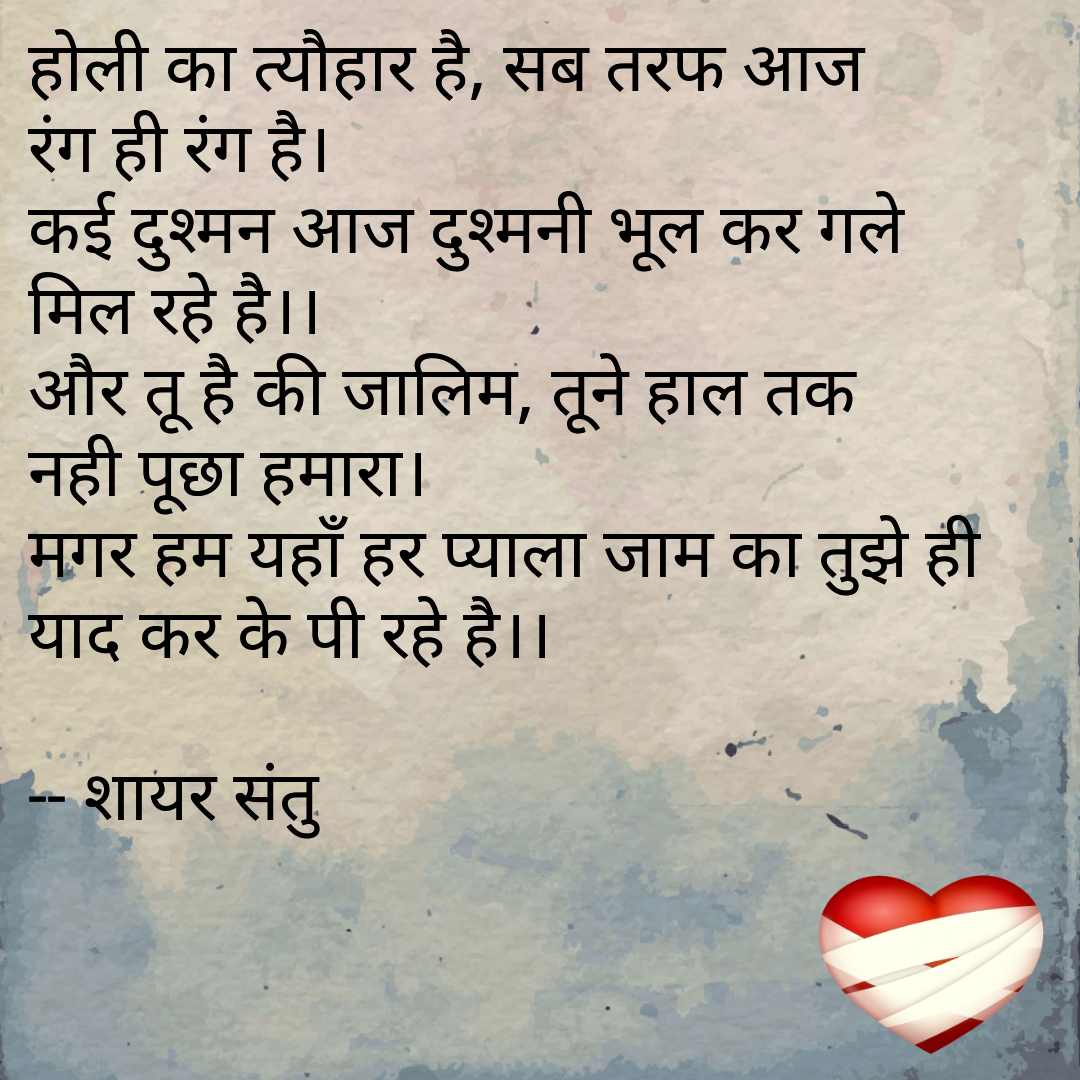 होली का त्यौहार है, सब तरफ आज
रंग ही रंग है।
कई दुश्मन आज दुश्मनी भूल कर गले
मिल रहे है।।
और तू है की जालिम, तूने हाल तक
नही पूछा हमारा।
मगर हम यहाँ हर प्याला जाम का तुझे ही
याद कर के पी रहे है।।
-- शायर संतु